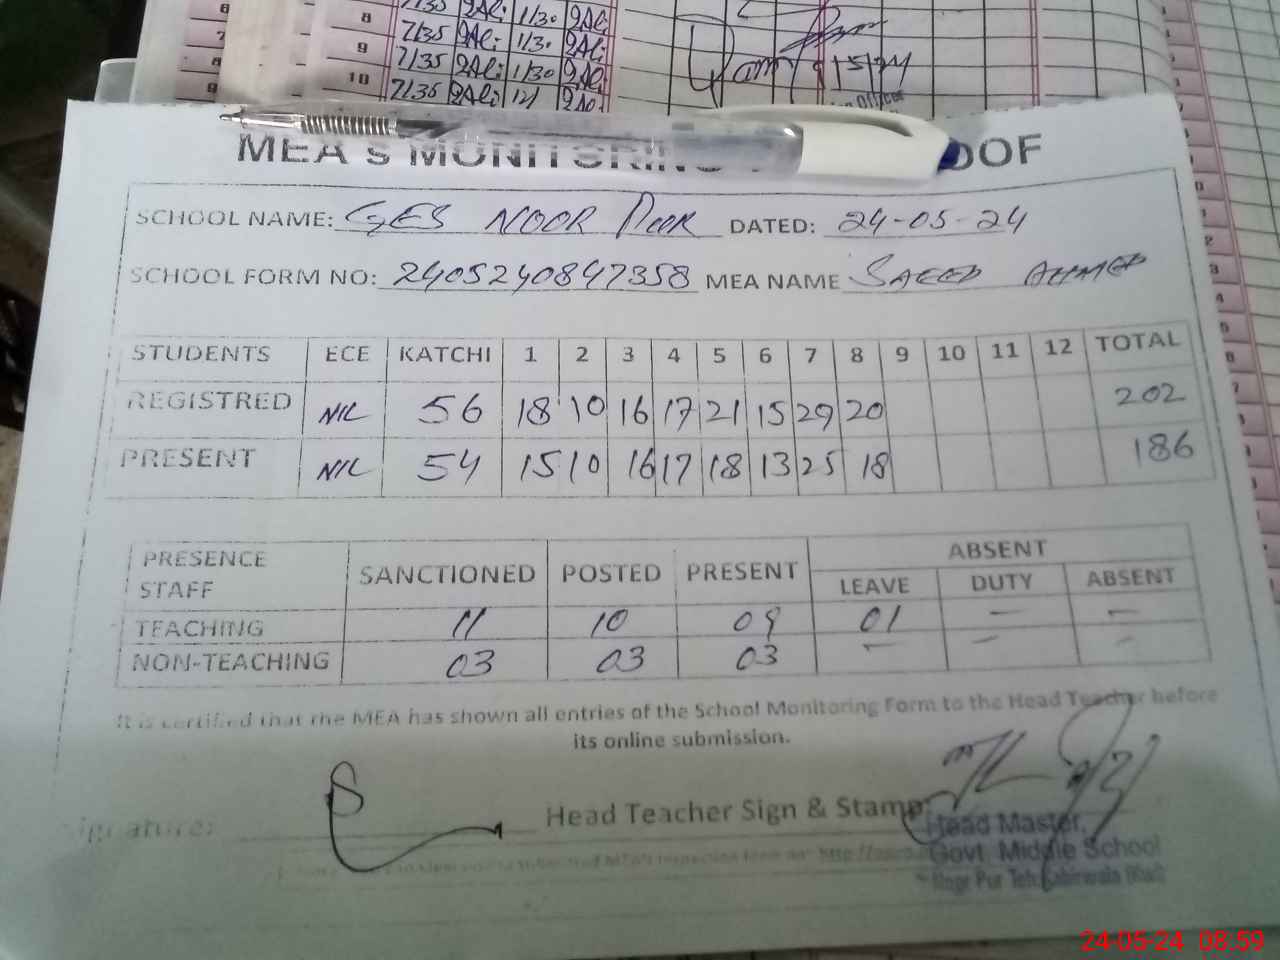 8 7/35 9Ali 1/30 9Ali
9 7/35 9Ali 1/30 9Ali
10 7/35 9Ali 12/
MEA's MONITORING OOF
SCHOOL NAME: GES NOOR POOR DATED: 24-05-24
SCHOOL FORM NO: 2405240847358 MEA NAME SAEED AHMED
STUDENTS ECE KATCHI 1 2 3 4 5 6 7 8 9 10 11 12 TOTAL
REGISTRED NIL 56 18 10 16 17 21 15 29 20 202
PRESENT NIL 54 15 10 16 17 18 13 25 18 186
PRESENCE STAFF SANCTIONED POSTED PRESENT ABSENT
LEAVE DUTY ABSENT
TEACHING 11 10 09 01 - -
NON-TEACHING 03 03 03 - - -
It is certified that the MEA has shown all entries of the School Monitoring Form to the Head Teacher before
its online submission.
Signature: Head Teacher Sign & Stamp:
Head Master,
Govt. Middle School
Noor Pur Teh. Kabirwala (Kwl)
24-05-24 08:59